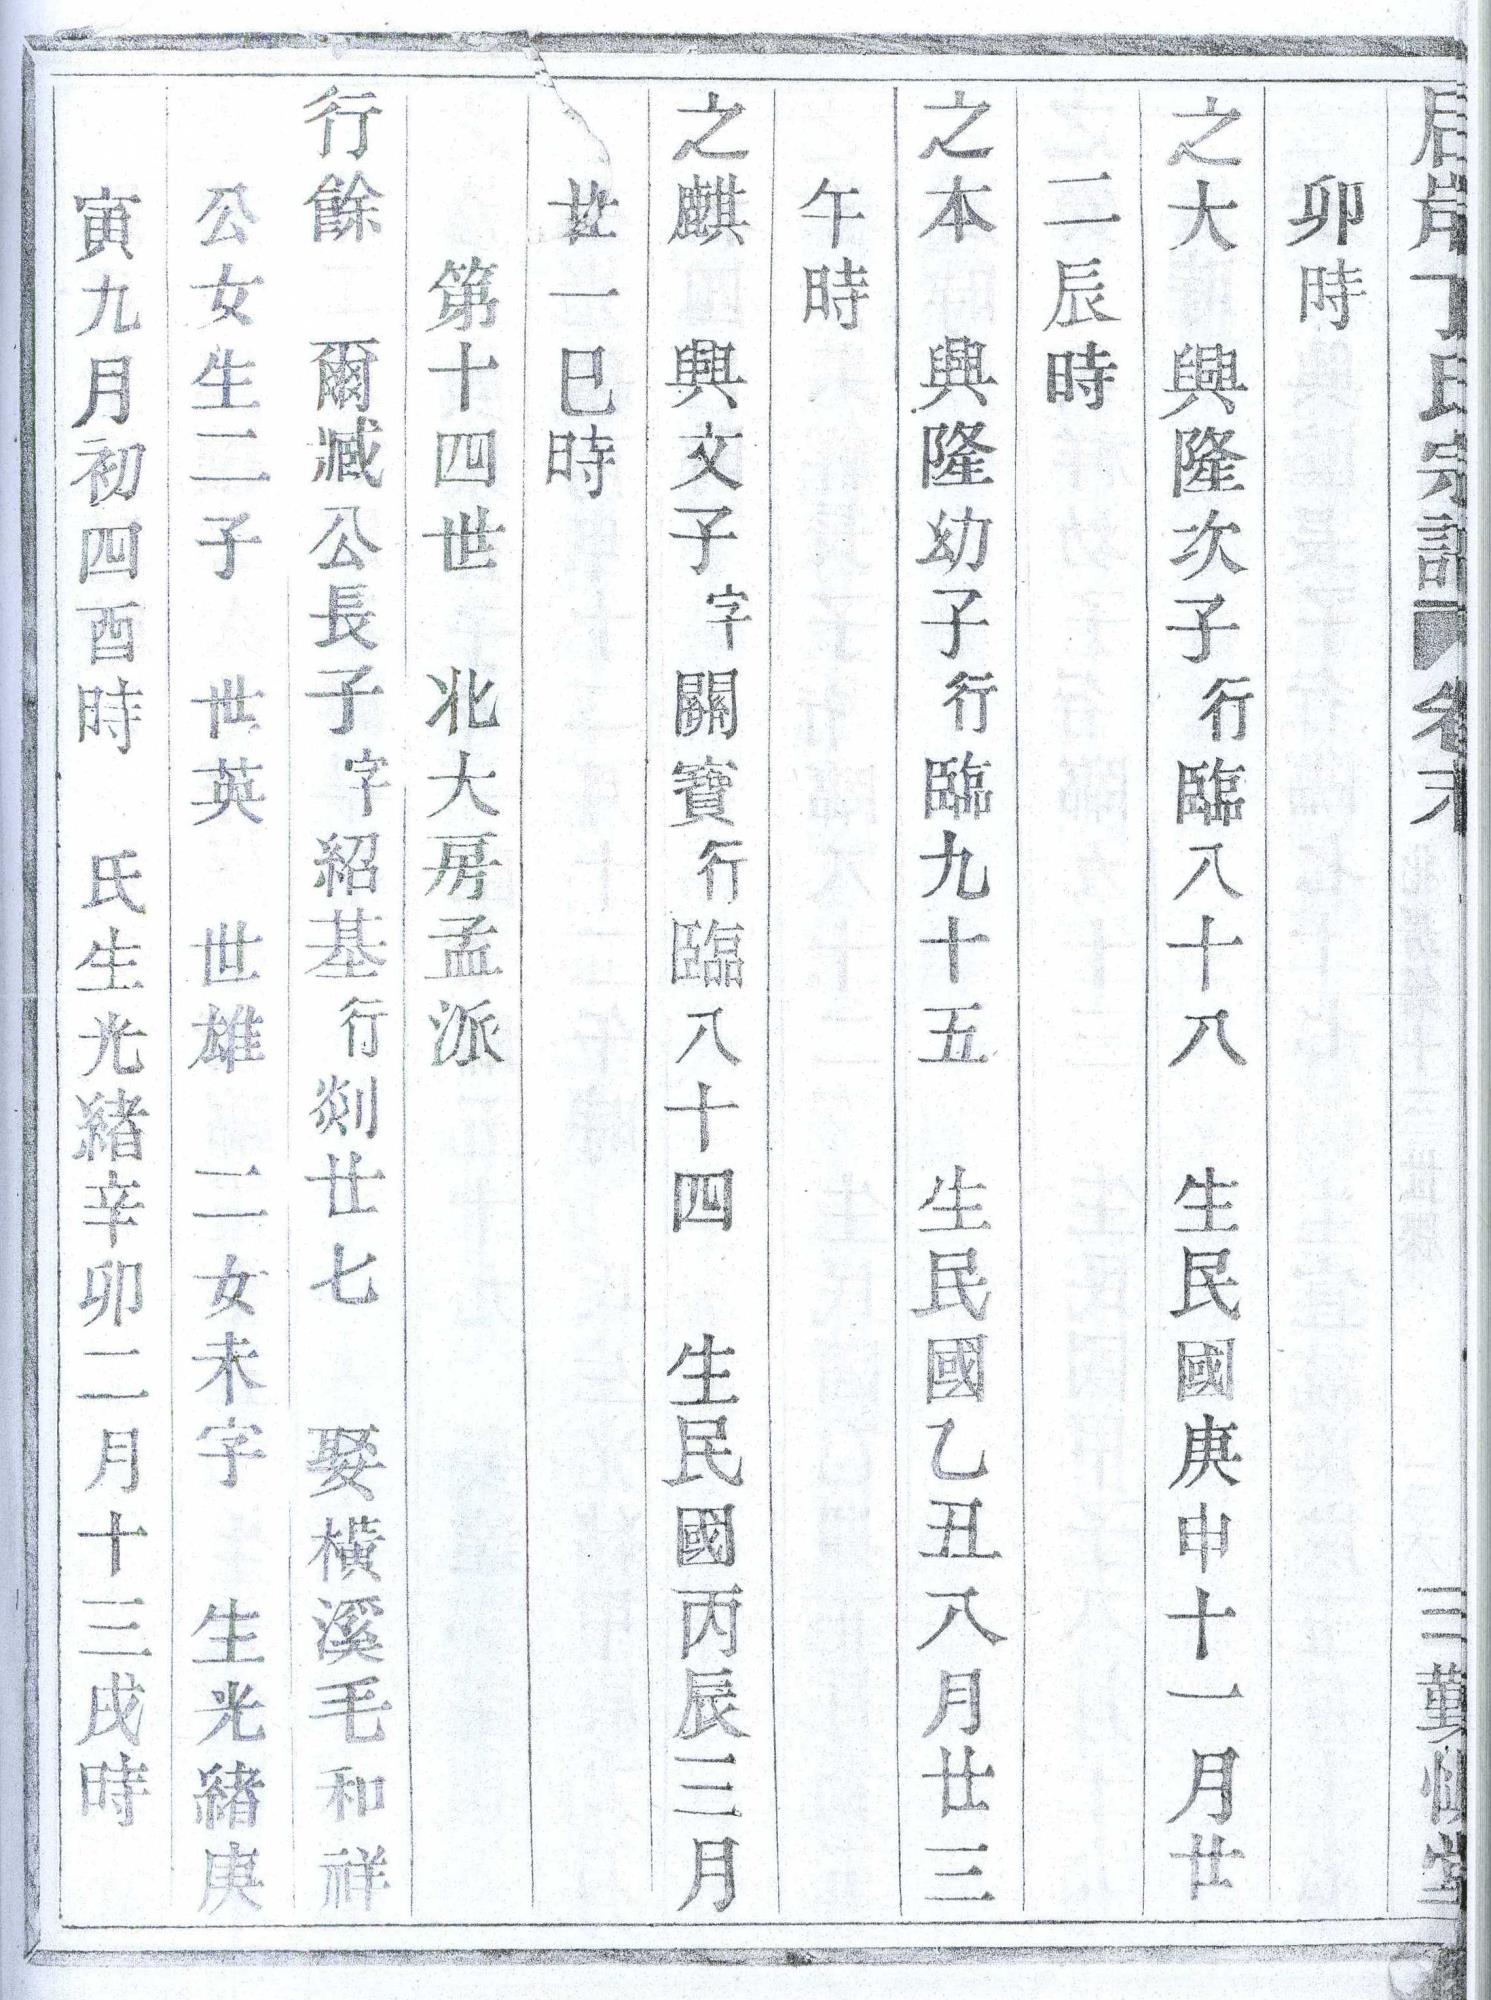 居岸丁氏宗譜 卷末 三 堂
卯時
之大 興隆次子行臨八十八 生民國庚申十一月廿
二辰時
之本 興隆幼子行臨九十五 生民國乙丑八月廿三
午時
之麒 興文子字關寶行臨八十四 生民國丙辰三月
廿一巳時
第十四世 北大房孟派
行餘 爾臧公長子字紹基行剡廿七 娶橫溪毛和祥
公女生二子 世英 世雄 二女未字 生光緒庚
寅九月初四酉時 氏生光緒辛卯二月十三戌時